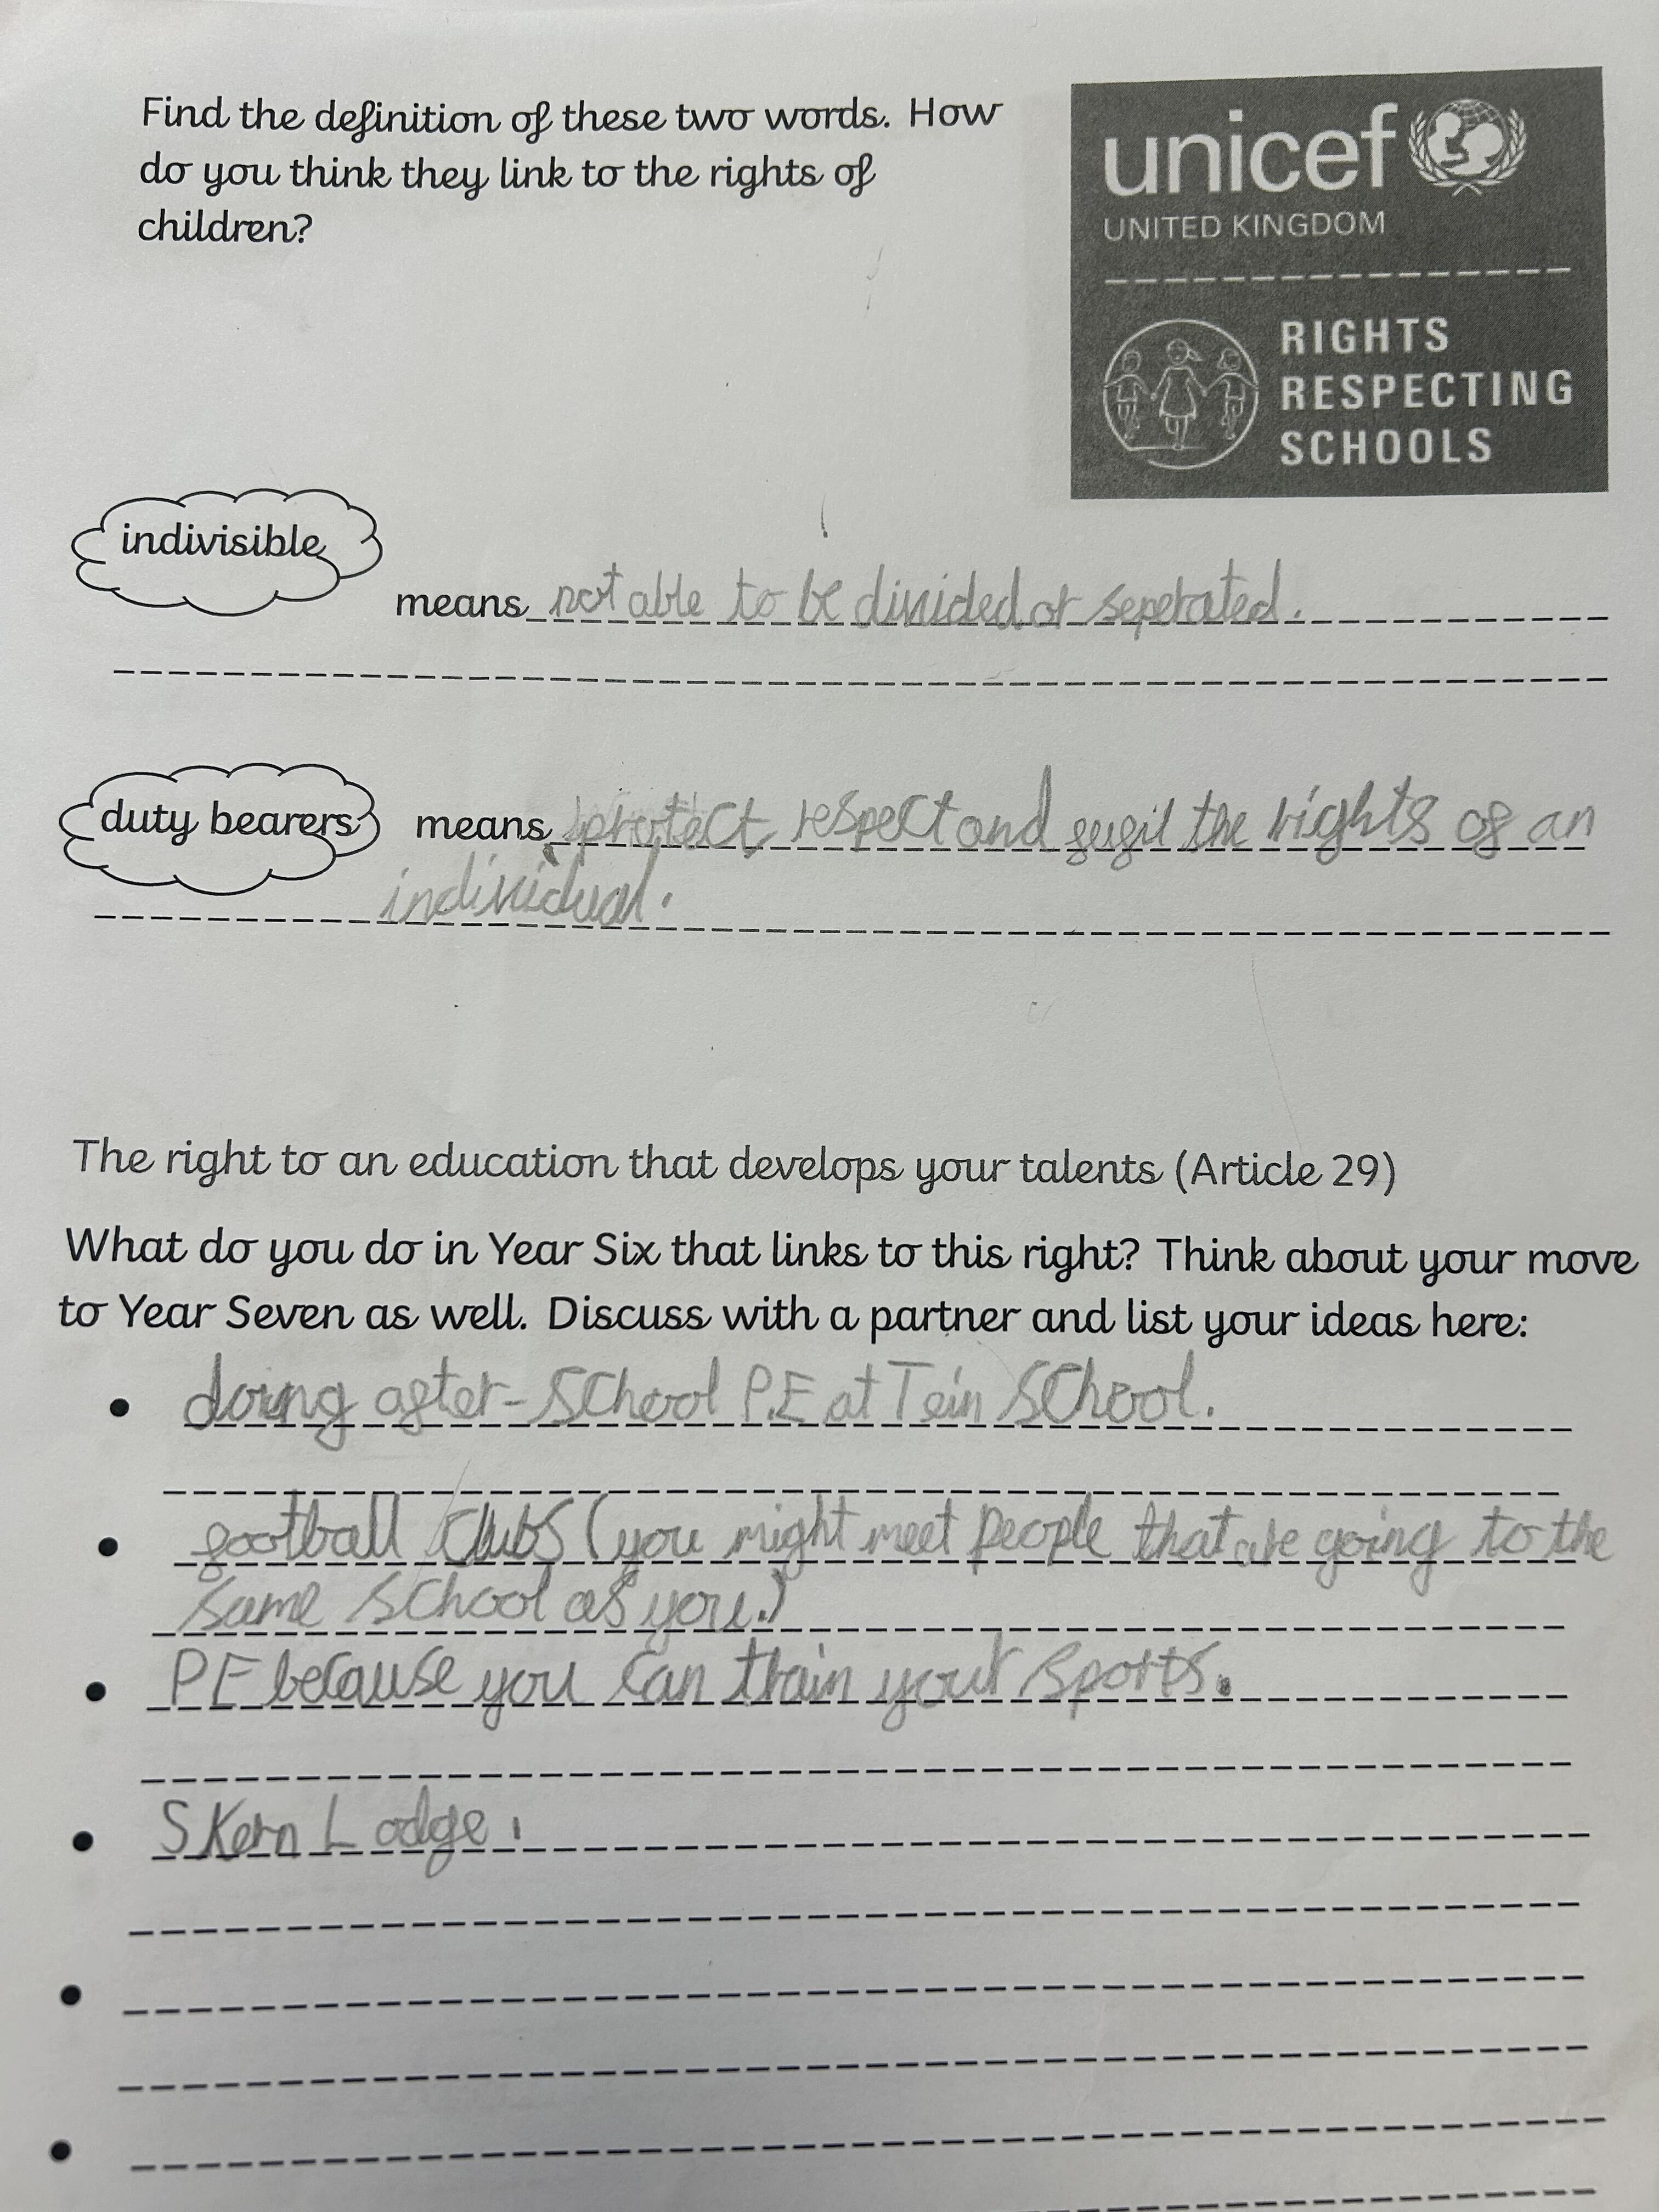 Find the definition of these two words. How
do you think they link to the rights of
children?
unicef
UNITED KINGDOM
RIGHTS
RESPECTING
SCHOOLS
indivisible
means not able to be divided or seperated.
duty bearers means protect respect and fugil the rights of an
individual.
The right to an education that develops your talents (Article 29)
What do you do in Year Six that links to this right? Think about your move
to Year Seven as well. Discuss with a partner and list your ideas here:
• doing after-School P.E at Tein School.
• football Clubs (you might meet people that are going to the
same School as you.)
• PE because you can train your sports.
• SKern Lodge.
•
•